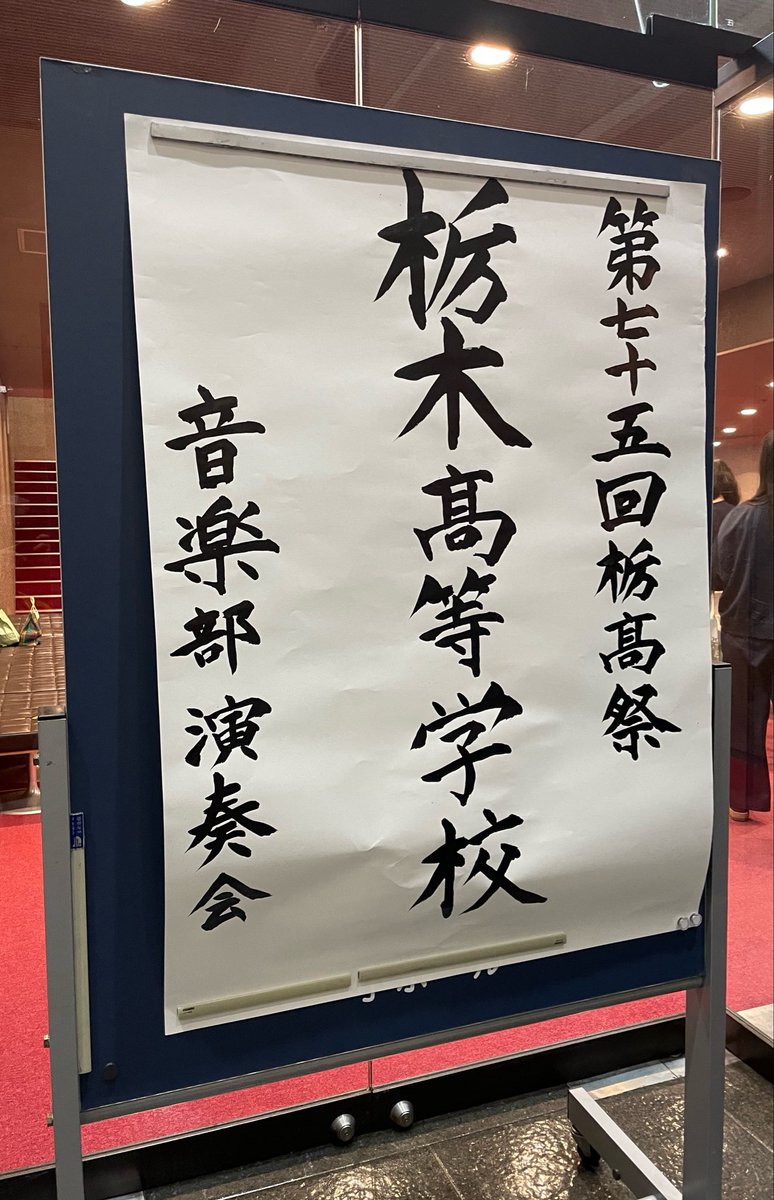 第七十五回栃髙祭
栃木髙等学校
音楽部 演奏会